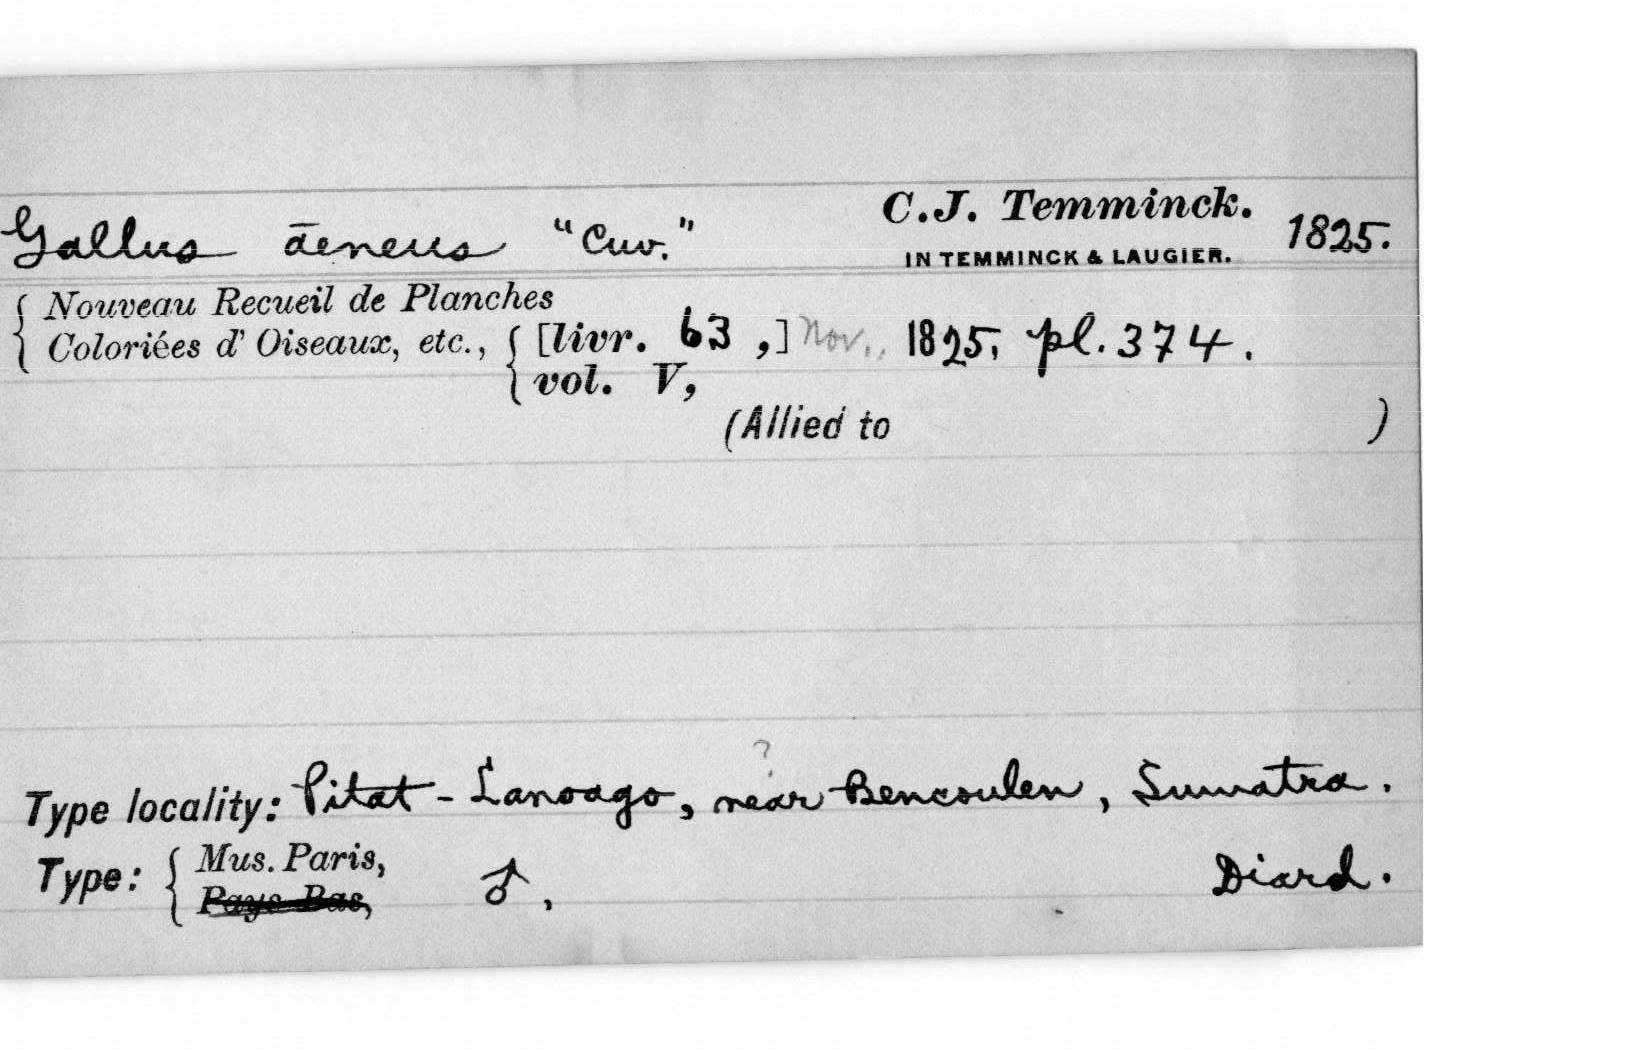 Gallus āeneus "Cuv." C.J. Temminck. 1825.
IN TEMMINCK & LAUGIER.
Nouveau Recueil de Planches
Coloriées d'Oiseaux, etc., [livr. 63 ,] Nov., 1825, pl. 374.
vol. V,
(Allied to )
?
Type locality: Pitat - Lanoago, near Bencoulen, Sumatra.
Type: Mus. Paris, ♂, Diard.
Pays Bas,